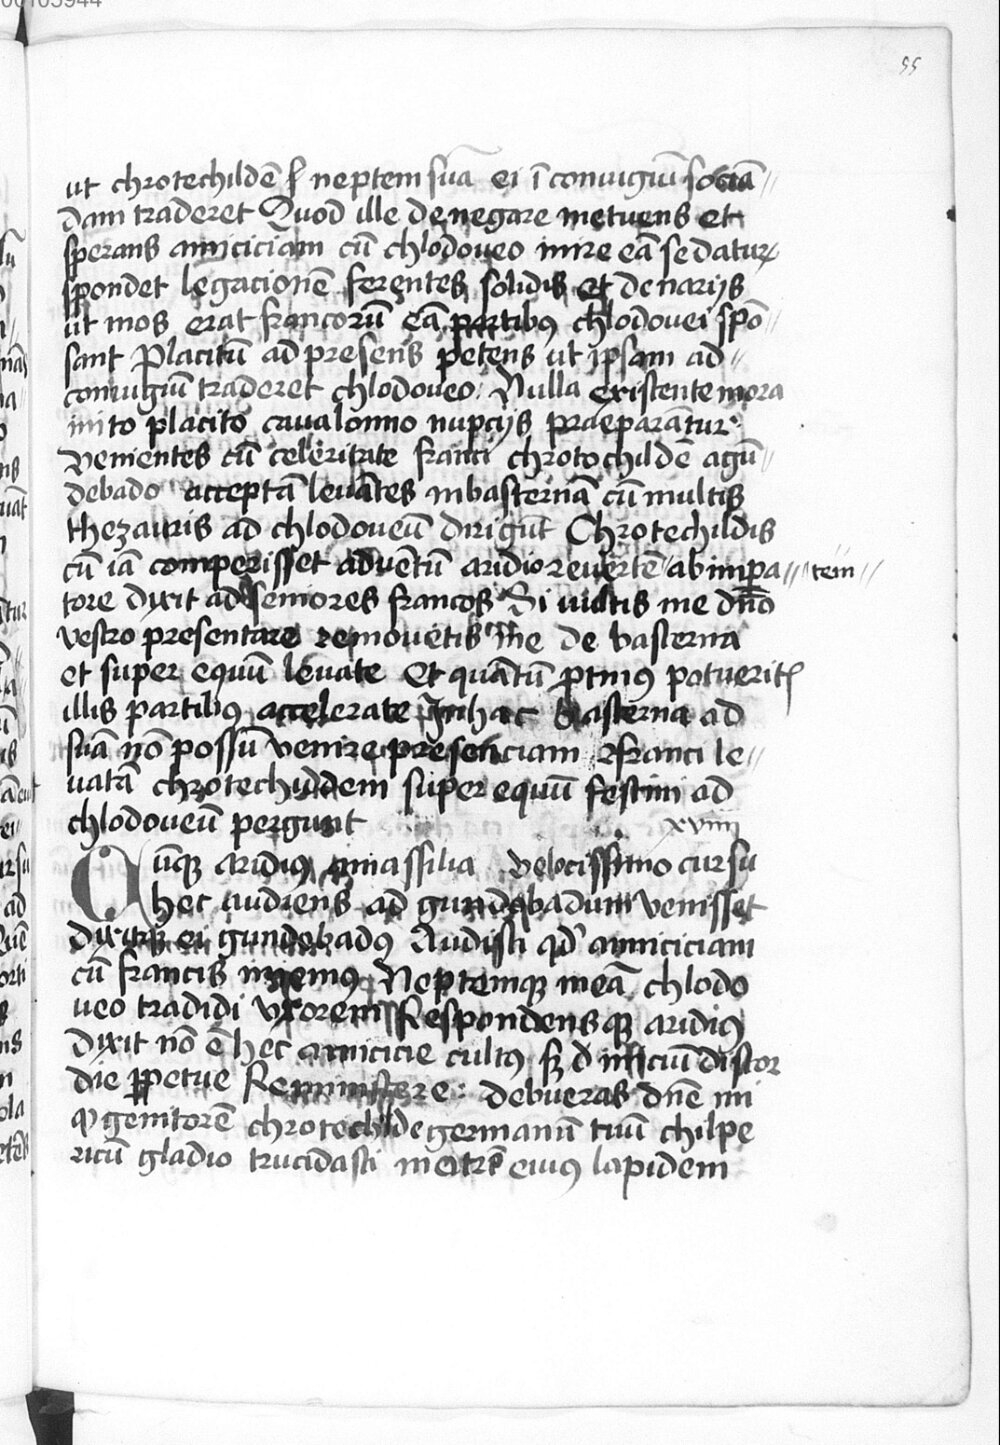 00103944
55
ut chrotechildē neptem suā ei ī coniugiū sociā//
dam traderet Quod ille denegare metuens et
sperans amiciciam cū chlodoueo inire eā se daturꝝ
spondet legacionē ferentes solidis et denarijs
ut mos erat francorū eā partibus chlodouei spō//
sant Placitū ad presens petens ut ipsam ad//
coniugiū traderet chlodoueo. Nulla existente mora
inito placito cavalonno nupcijs praeparātur.
venientes cū celeritate franci chrotochildē agū//
debado acceptā levātes inbasternā cū multis
thezauris ad chlodoveū dirigūt Chrotechildis
cū iā comperisset advētū aridio revertētem ab impa//
tore dixit ad seniores francos Si vultis me dn̄o
vestro presentare removētis me de basterna
et super equū levate Et quātū ptinus potueritꝭ
illis partibus accelerate Inhac basterna ad
suā nō possū venire presenciam franci le//
vatā chrotechildem super equū festini ad
chlodoveū pergunt
xviiii
Cūqꝫ aridius amassilia velocissimo cursu
hec audiens ad gundebadum venisset
Dixitqꝫ ei gundobadus Audisti qd' amiciciam
cū francis inivimus Neptemqꝫ meā chlodo
veo tradidi uxorem Respondensqꝫ aridius
dixit nō ē hec amicicie cultus sꝫ iniciū discor
die ꝑpetue Reminiscere: debueras dn̄e mi
ꝙ genitorē chrotechilde germanū tuū chilpe
ricū gladio trucidasti matrē eius lapidem